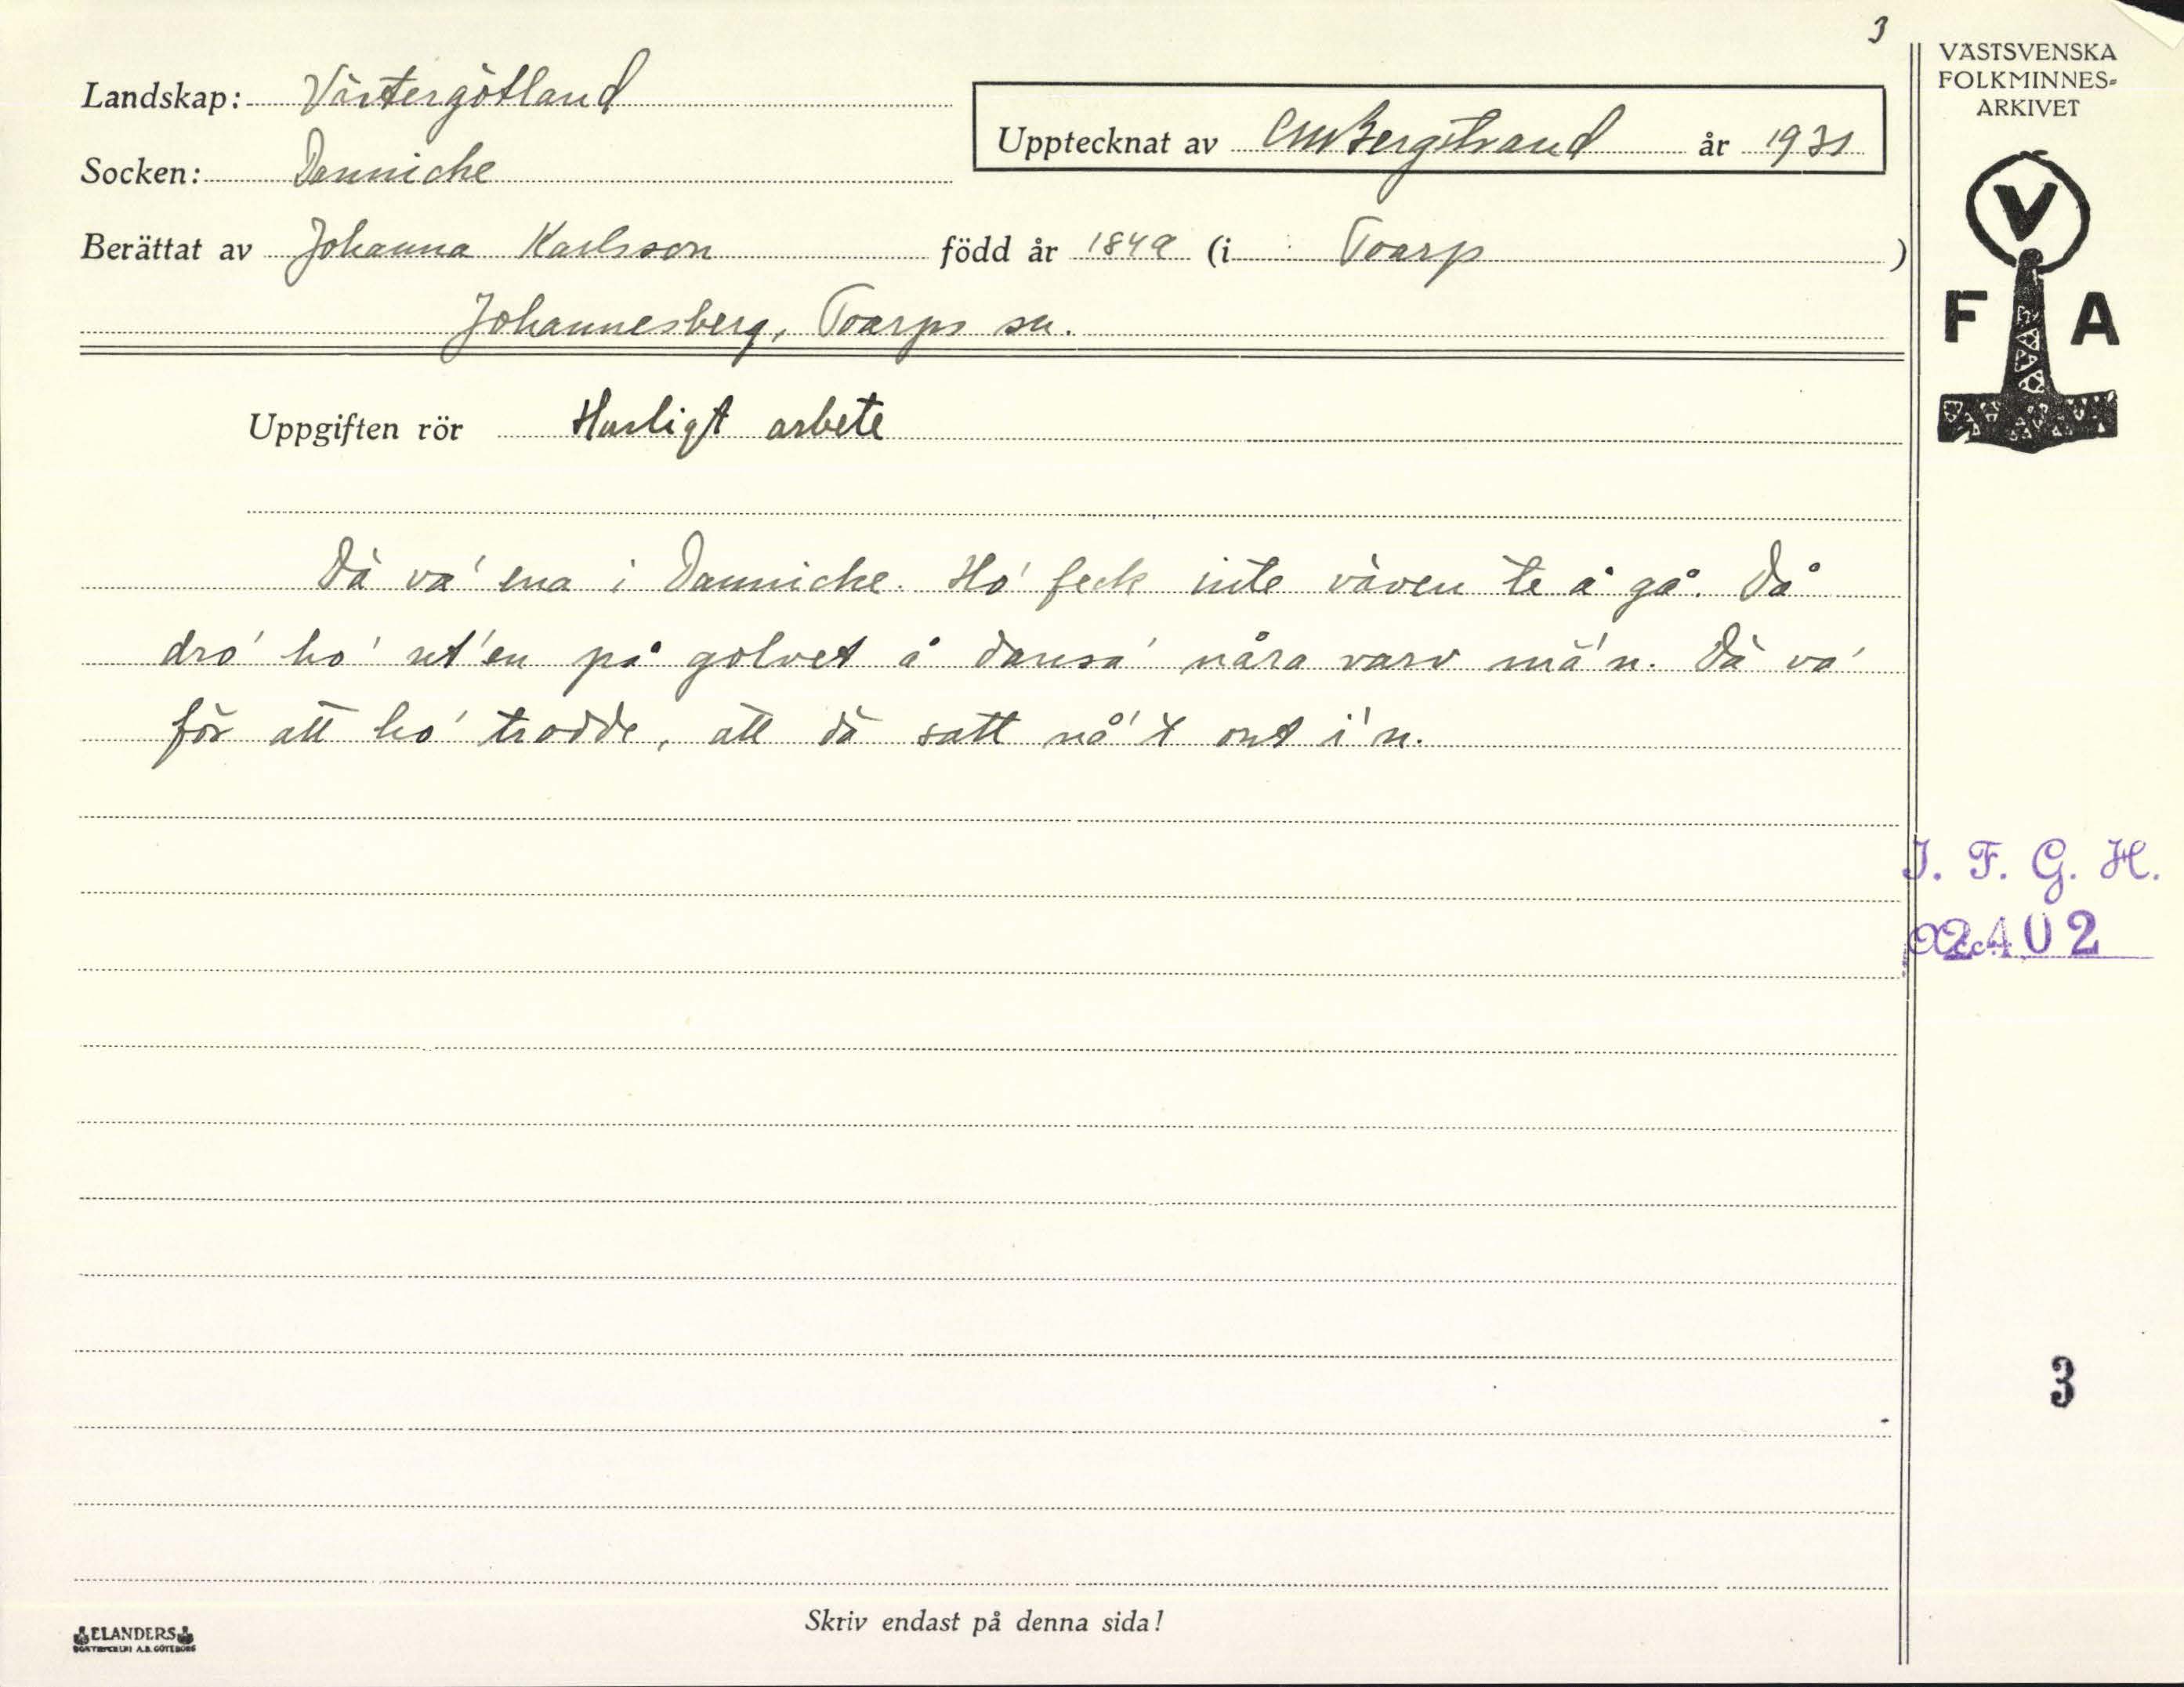 3
VÄSTSVENSKA
FOLKMINNES-
ARKIVET
Landskap: Västergötland
Upptecknat av CMBergstrand år 1931
Socken: Dannicke
Berättat av Johanna Karlsson född år 1849 (i Toarp )
Johannesberg, Toarps sn.
V
F A
Uppgiften rör Husligt arbete
Dä va' ena i Dannicke. Ho' feck inte väven te å gå. Då
dro' ho' ut'en på golvet å dansa' nåra varv mä'n. Dä va'
för att ho' trodde, att dä satt nå't ont i'n.
I. F. G. H.
Acc. 2402
3
Skriv endast på denna sida!
ELANDERS
BOKTRYCKERI A.B. GÖTEBORG